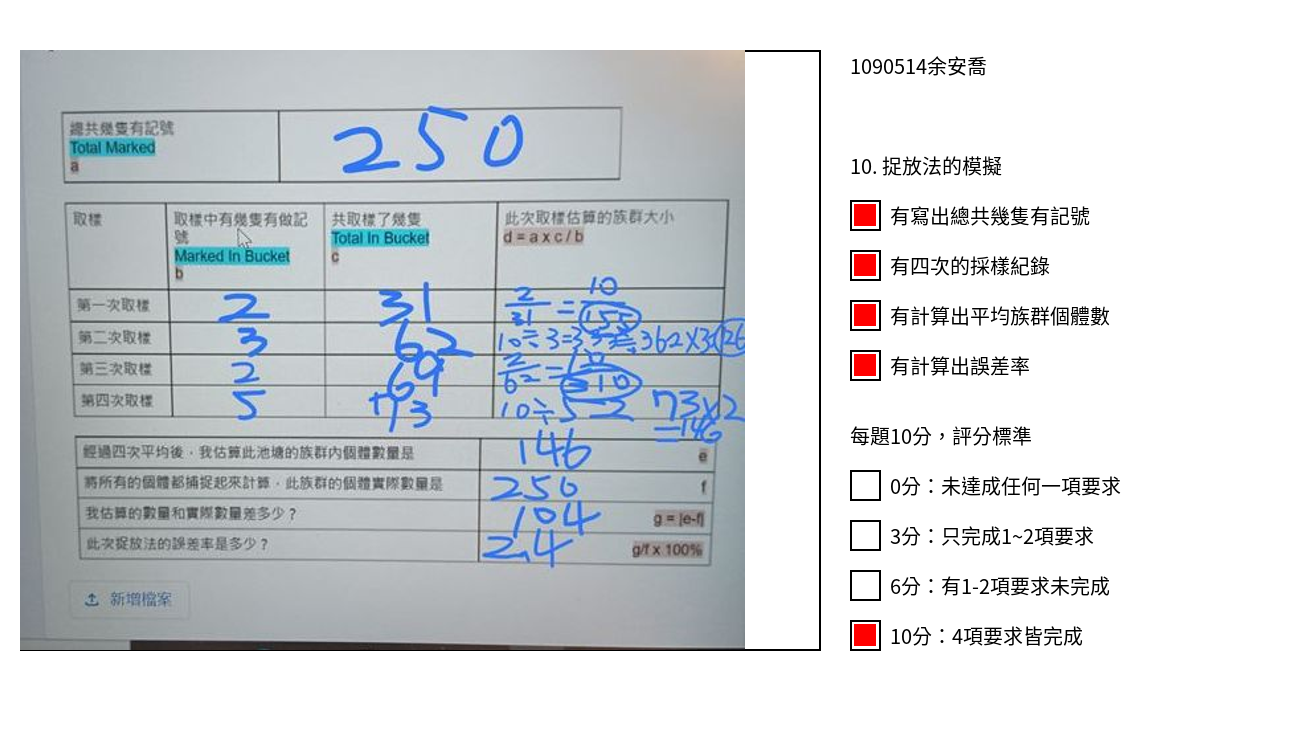 總共幾隻有記號
Total Marked
a
250
取樣
取樣中有幾隻有做記號
Marked In Bucket
b
共取樣了幾隻
Total In Bucket
c
此次取樣估算的族群大小
d = a x c / b
第一次取樣
2
31
2/31 = 10/155
第二次取樣
3
62
10÷3=3
第三次取樣
2
69
2/62 = 10/310
第四次取樣
5
73
10÷5 2 73×2
=146
經過四次平均後，我估算此池塘的族群內個體數量是
146
e
將所有的個體都捕捉起來計算，此族群的個體實際數量是
250
f
我估算的數量和實際數量差多少？
104
g = |e-f|
此次捉放法的誤差率是多少？
2.4
g/f x 100%
新增檔案
1090514余安喬
10. 捉放法的模擬
有寫出總共幾隻有記號
有四次的採樣紀錄
有計算出平均族群個體數
有計算出誤差率
每題10分，評分標準
0分：未達成任何一項要求
3分：只完成1~2項要求
6分：有1-2項要求未完成
10分：4項要求皆完成